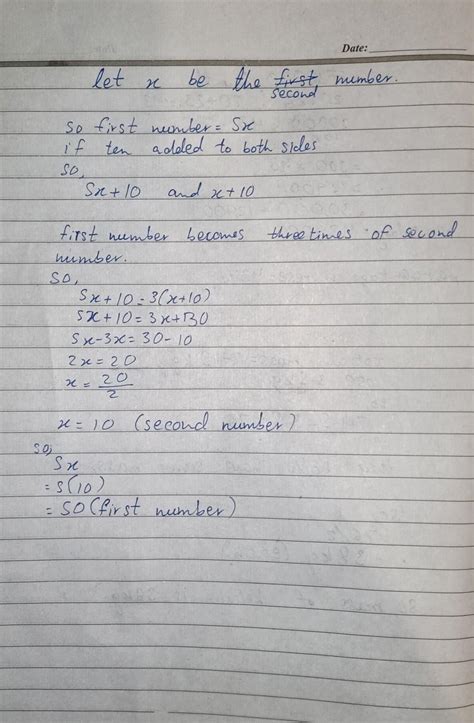 Date:
let x be the first number.
second
so first number = 5x
if ten added to both sides
so,
5x+10 and x+10
first number becomes three times of second
number.
so,
5x+10=3(x+10)
5x+10=3x+30
5x-3x=30-10
2x=20
x=20/2
x=10 (second number)
so,
5x
=5(10)
=50(first number)